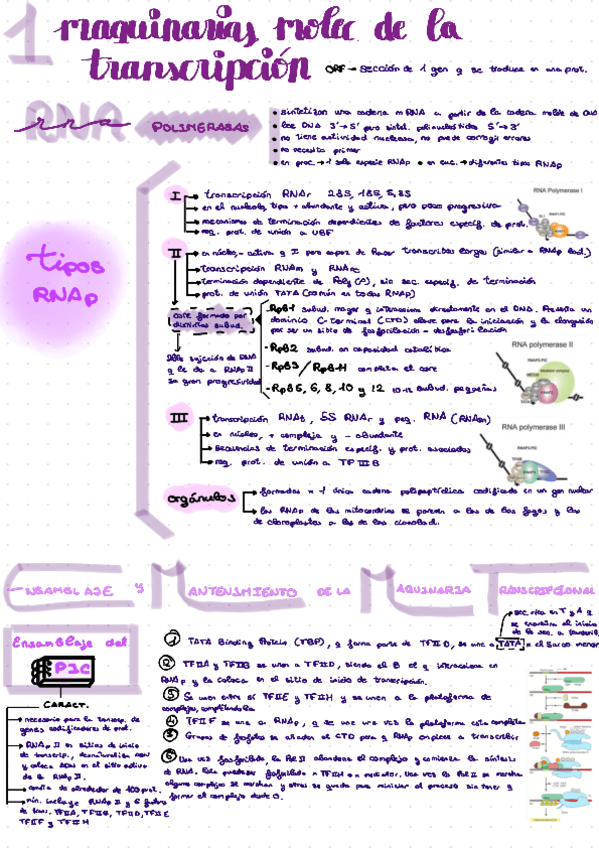 1 maquinarias molec de la
transcripción
ORF → sección de 1 gen q se traduce en una prot.
RNA
rna
POLIMERASAS
• sintetizan una cadena mRNA a partir de la cadena molde de DNA
• lee DNA 3'→5' pero sintet. polinucleótidos 5'→3'
• no tiene actividad nucleasa, no puede corregir errores
• no necesita primer
• en proc. → 1 sola especie RNAp • en euc. → diferentes tipos RNAp
tipos
RNAp
I
transcripción RNAr 28S, 18S, 5,8S
en el nucleolo, tipo + abundante y activa, pero poco progresiva
mecanismos de terminación dependientes de factores específ. de prot.
req. prot. de unión a UBF
RNA Polymerase I
II
en núcleo, - activa q I pero capaz de hacer transcritos largos (similar a RNAp bact.)
transcripción RNAm y RNAnc
terminación dependiente de Poly (A), sin sec. específ. de terminación
prot. de unión TATA (común en todas RNAp)
core formado por
distintas subud.
- RpB1 subud. mayor q interacciona directamente en el DNA. Presenta un
dominio C-terminal (CTD) clave para la iniciación y la elongación
por ser un sitio de fosforilación - desfosforilación
- RpB2 subud. en capacidad catalítica
- RpB3 / RpB11 completa el core
- RpB5, 6, 8, 10 y 12 subud. pequeñas
sujeción de DNA
q le da a RNAp II
su gran progresividad
RNA polymerase II
III
transcripción RNAt, 5S RNAr y peq. RNA (RNAsn)
en núcleo, + compleja y - abundante
secuencias de terminación específ. y prot. asociadas
req. prot. de unión a TFIIIB
RNA polymerase III
orgánulos
formados x 1 única cadena polipeptídica codificada en un gen nuclear
las RNAp de las mitocondrias se parecen a las de los fagos y las
de cloroplastos a las de las cianobact.
ENSAMBLAJE Y MANTENIMIENTO DE LA MAQUINARIA TRANSCRIPCIONAL
sec. rica en T y A q
se encuentra al inicio
de la sec. a transcrib.
Ensamblaje del
PIC
CARACT.
necesario para la transcrip. de
genes codificadores de prot.
RNAp II en sitios de inicio
de transcrip., desnaturaliza ADN
y coloca ADN en el sitio activo
de la RNAp II.
consta de alrededor de 100 prot.
mín. incluye RNAp II y 6 factores
de trans. TFIIA, TFIIB, TFIID, TFIIE
TFIIF y TFIIH
1 TATA Binding Protein (TBP), q forma parte de TFIID, se une a TATA en el surco menor
2 TFIIA y TFIIB se unen a TFIID, siendo el B el q interacciona en
RNAp y la coloca en el sitio de inicio de transcripción.
3 Se unen entre sí TFIIE y TFIIH y se unen a la plataforma de
complejos, completándola
4 TFIIF se une a RNAp, q se une una vez la plataforma esta completa
5 Grupos de fosfatos se añaden al CTD para q RNAp empiece a transcribir
6 Una vez fosforilado, la Pol II abandona el complejo y comienza la síntesis
de RNA. Este puede ser fosforilado x TFIIH o x mediator. Una vez la Pol II se marcha
algunos complejos se marchan y otros se quedan para reiniciar el proceso sin tener q
formar el complejo desde 0.